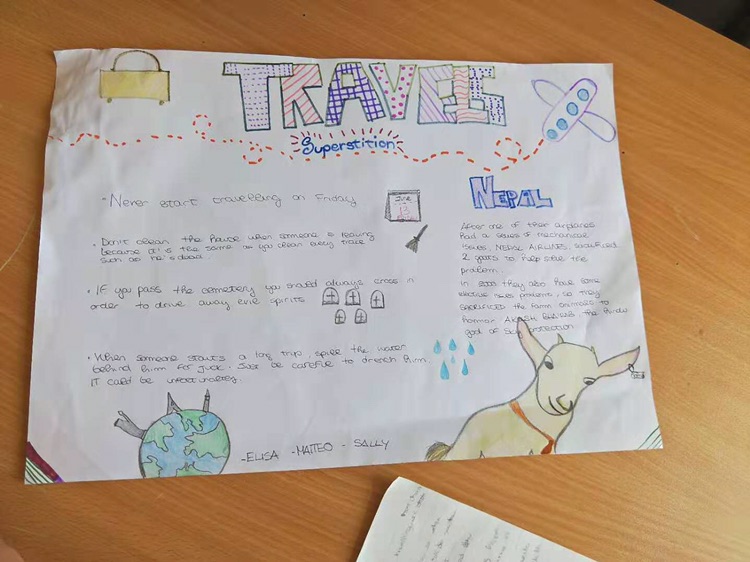 TRAVELS
Superstition
- Never start travelling on Friday
• Don't clean the house when someone is leaving
because it's the same as you clean every trace
such as he's dead.
• IF you pass the cemetery you should always cross in
order to drive away evil spirits
• When someone starts a long trip, spill the water
behind him for luck. Just be careful to drench him.
IT could be unfortunately.
-ELISA -MATTEO - SALLY
NEPAL
After one of their airplanes
had a issues of mechanical
issues, NEPAL AIRLINES, sacrificed
2 goats to help solve the
problem.
In 2007 they also have some
problems, so they
SACRIFICED the farm animals to
honnor AKASH BHAIRAB the hindu
god of sky protection